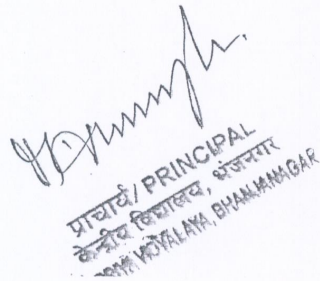 प्राचार्य / PRINCIPAL
केन्द्रीय विद्यालय, भंजनगर
VIDYALAYA, BHANJANAGAR